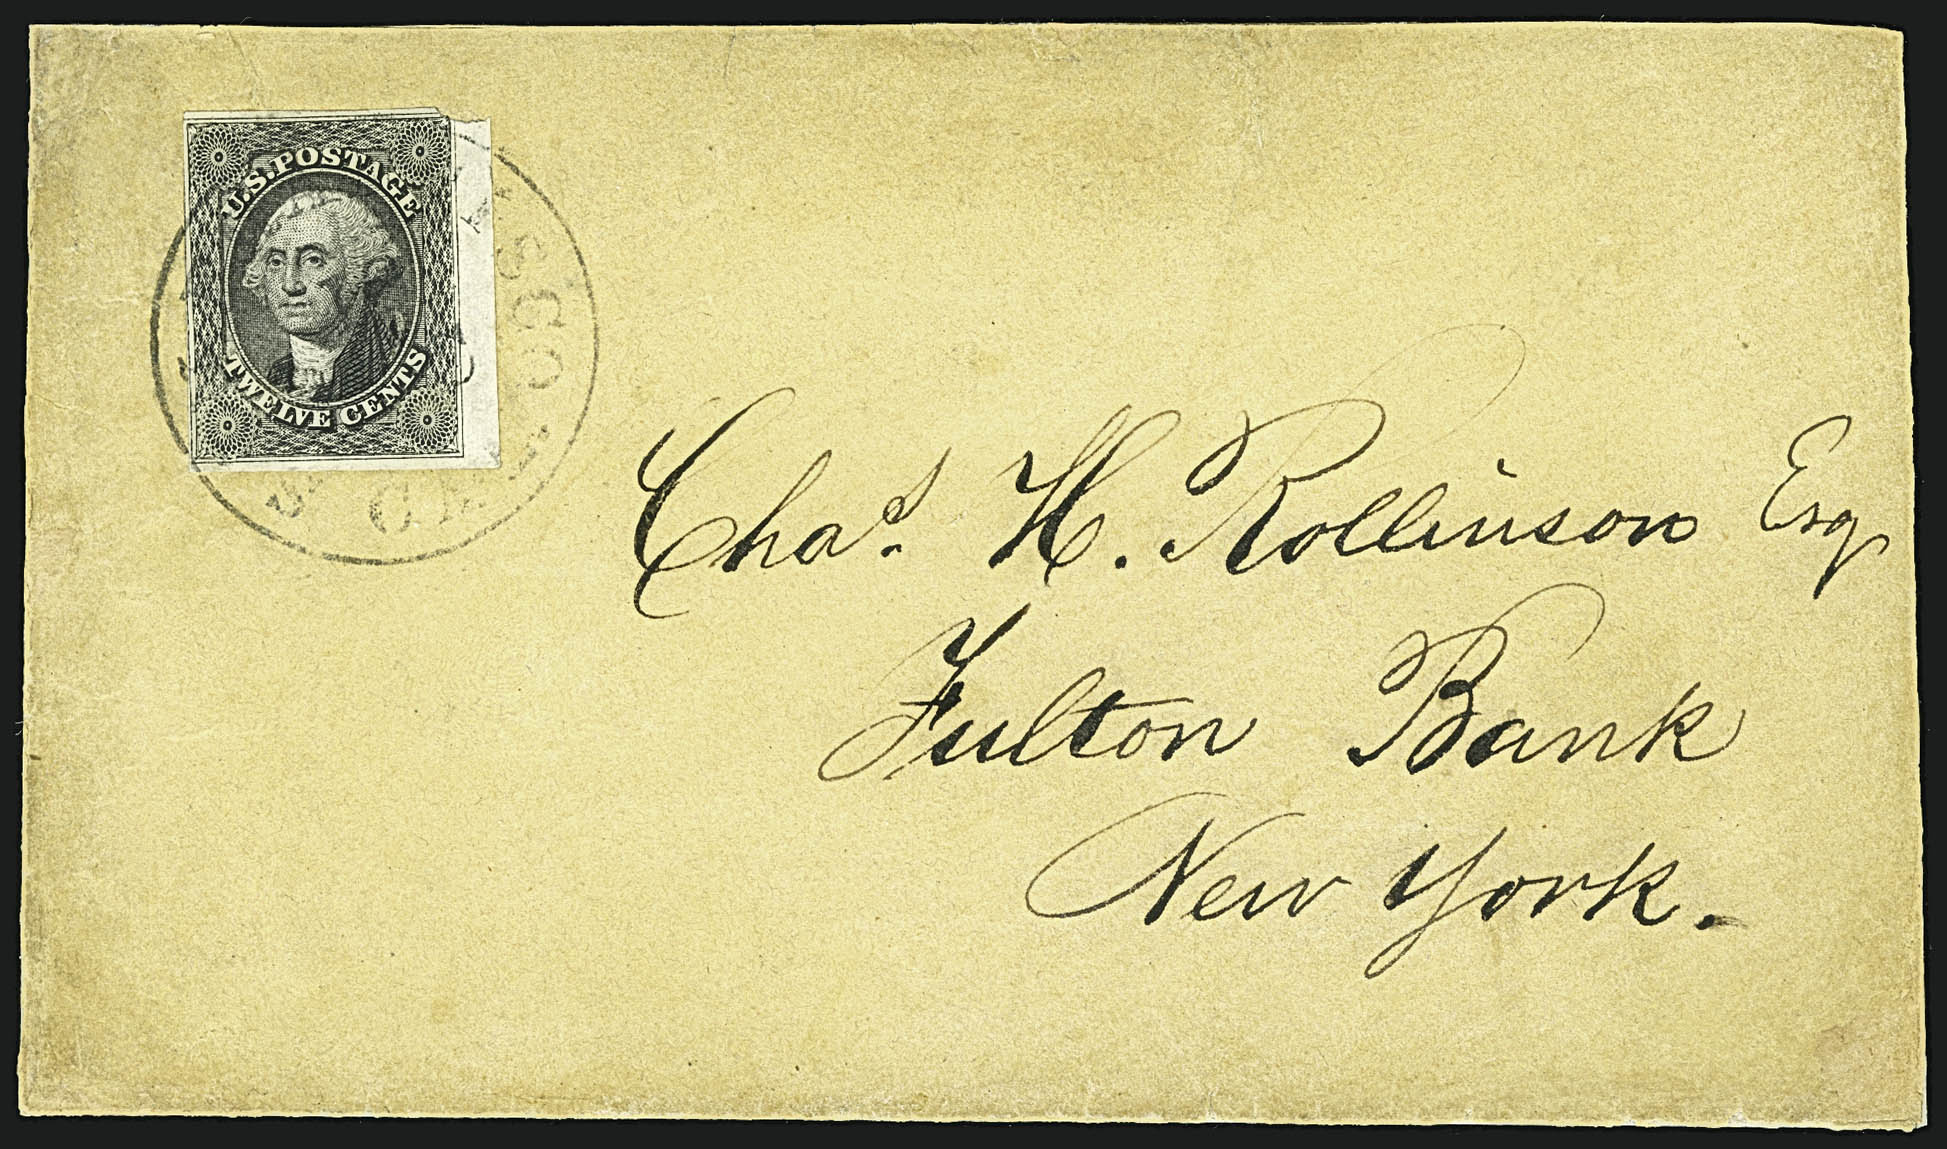 U.S. POSTAGE
TWELVE CENTS
Chas. H. Rollinson Esq
Fulton Bank
New York.